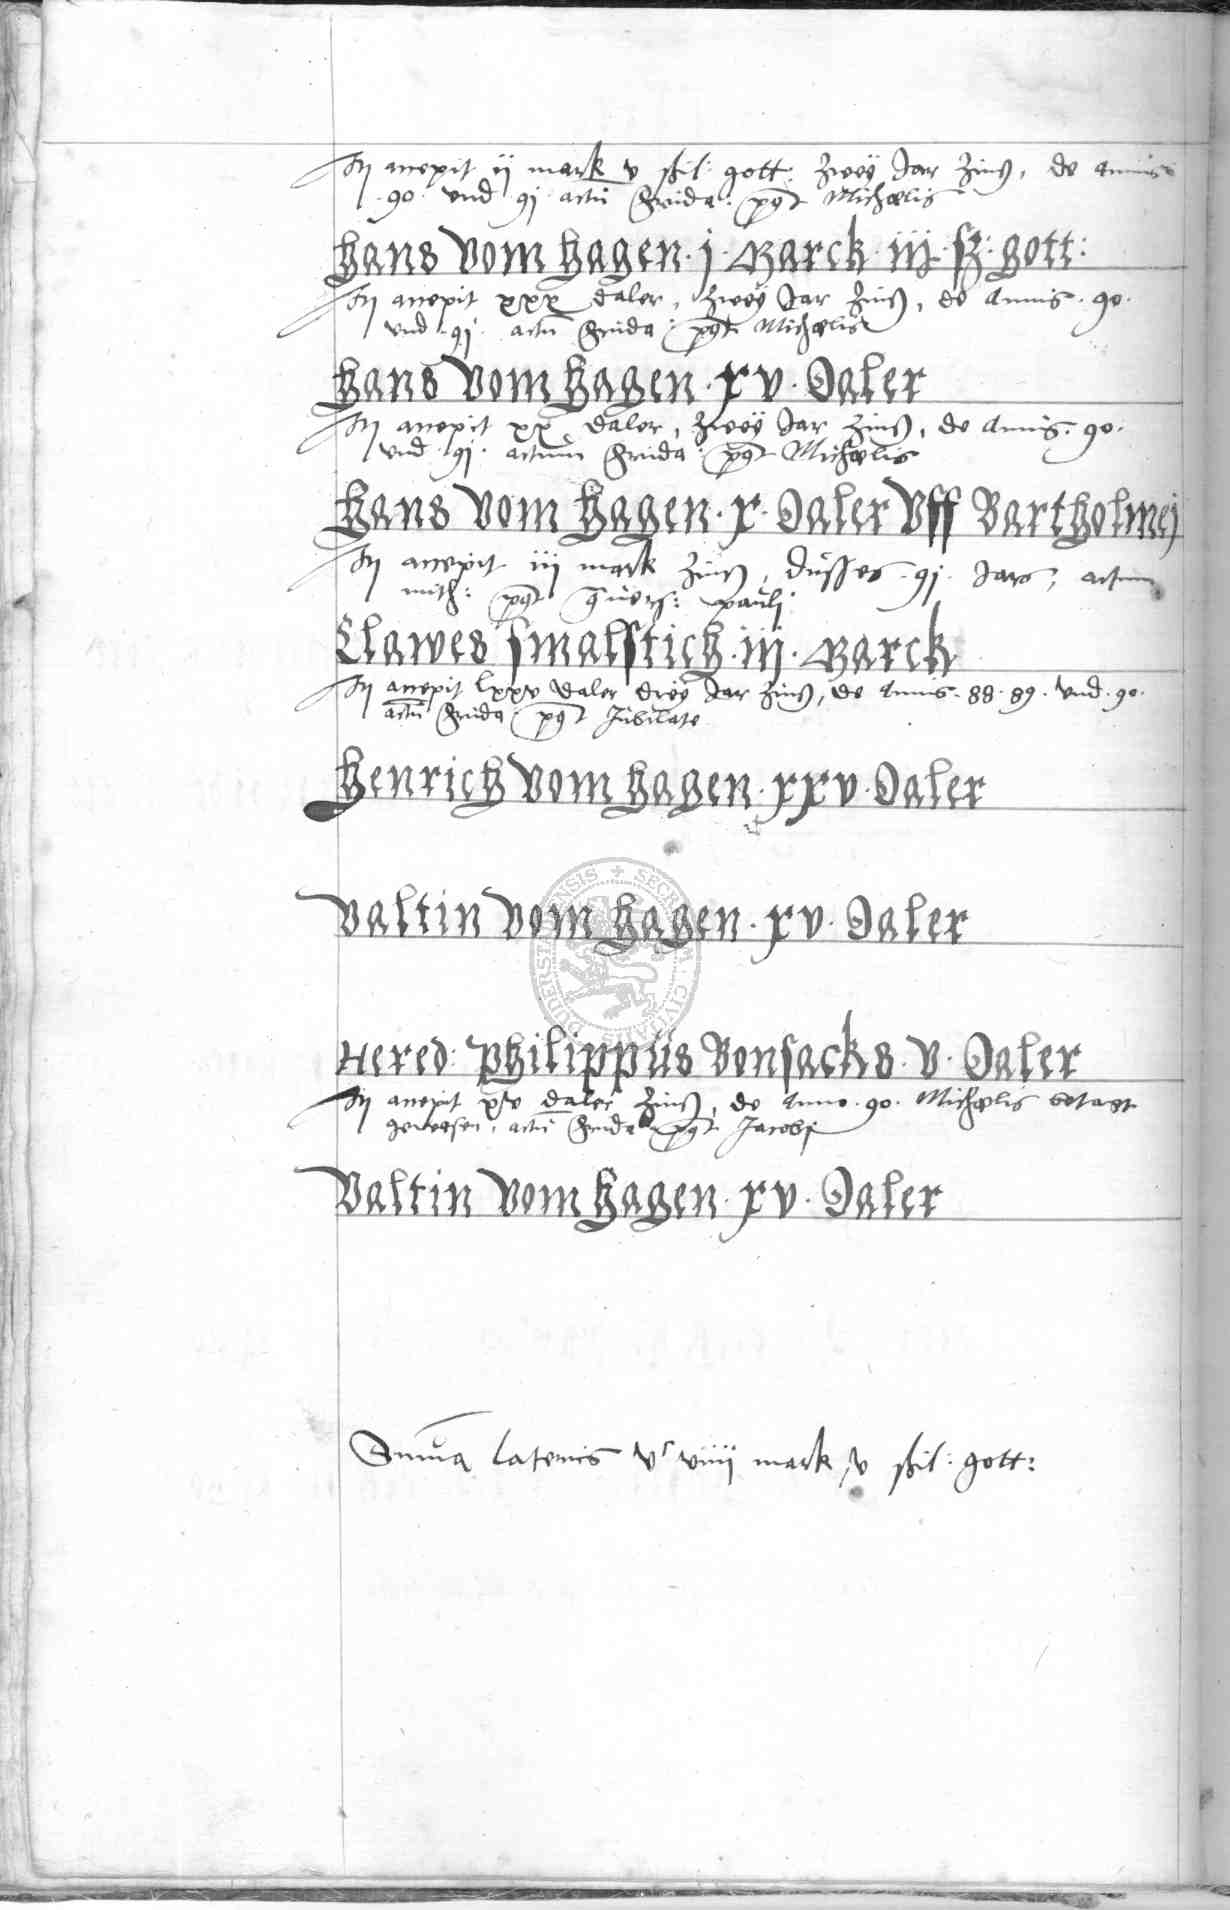 It accepit ij mark v ßil: gott: zweÿ Jar Zinß, de Annis
90 vnd 91 actu frida: post Michaelis
Hans Vom Hagen · j · Marck iij ß: gott:
It accepit xxx daler, zweÿ Jar Zinß, de Annis · 90 ·
vnd 91 · actu frida: post Michaelis
Hans Vom Hagen · xv · Daler
It accepit xx daler, zweÿ Jar Zinß, de Annis · 90 ·
vnd 91 · actum frida: post Michaelis
Hans Vom Hagen · x · Daler Vff Bartholmej
It accepit iij mark Zinß, dusses · 91 · Jars, actum
mith: post Conuers: pauli
Clawes smalstich · iij · Marck
It accepit lxxv daler dreÿ Jar Zinß, de Annis · 88 · 89 · vnd · 90 ·
actu frida post Jubilate
Henrich Vom Hagen · xxv · Daler
Valtin Vom Hagen · xv · Daler
SECRETUM CIVITATIS DUDERSTADENSIS
Hered: Philippus Bonsacks · v · Daler
It accepit xv daler Zinß, de Anno · 90 · Michaelis betagt
gewesen, actu frida post Jacobj
Valtin Vom Hagen · xv · Daler
Summa lateris viiij mark v ßil: gott: